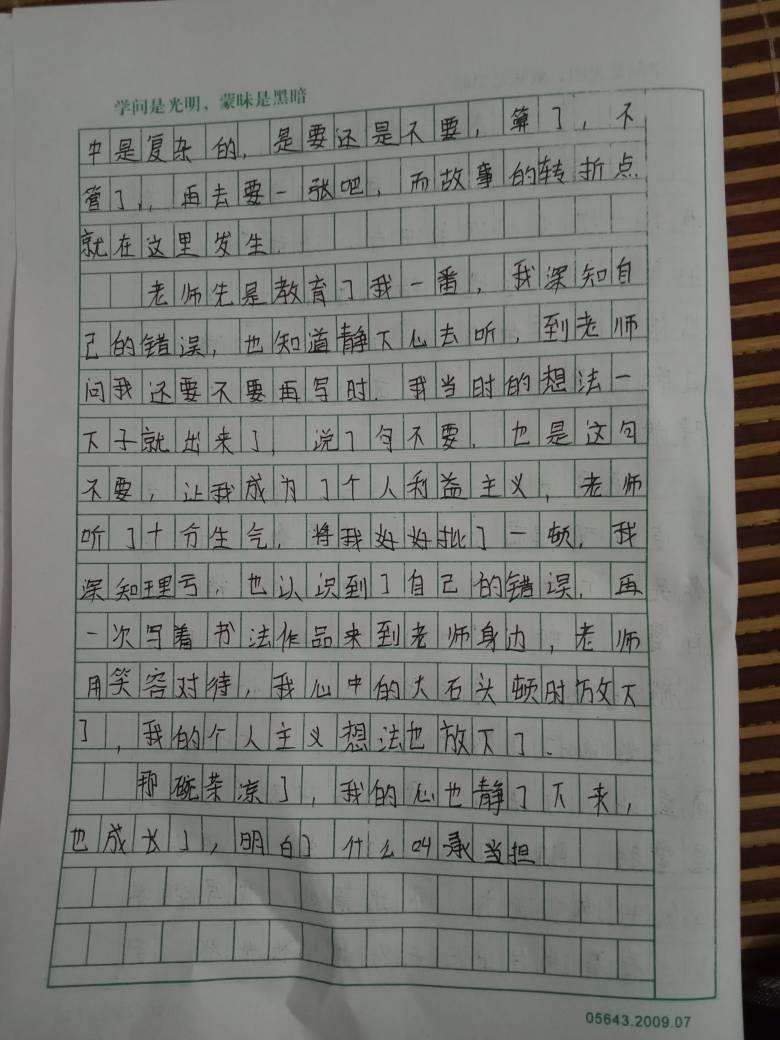 学问是光明，蒙昧是黑暗
中是复杂的，是要还是不要，算了，不
管了，再去要一张吧，而故事的转折点
就在这里发生.
老师先是教育了我一番，我深知自
己的错误，也知道静下心去听，到老师
问我还要不要再写时.我当时的想法一
下子就出来了，说了句不要.也是这句
不要，让我成为了个人利益主义，老师
听了十分生气，将我好好批了一顿，我
深知理亏，也认识到了自己的错误，再
一次写着书法作品来到老师身边，老师
用笑容对待，我心中的大石头顿时放下
了，我的个人主义想法也放下了.
那碗茶凉了，我的心也静了下来，
也成长了，明白了什么叫承当担
05643.2009.07